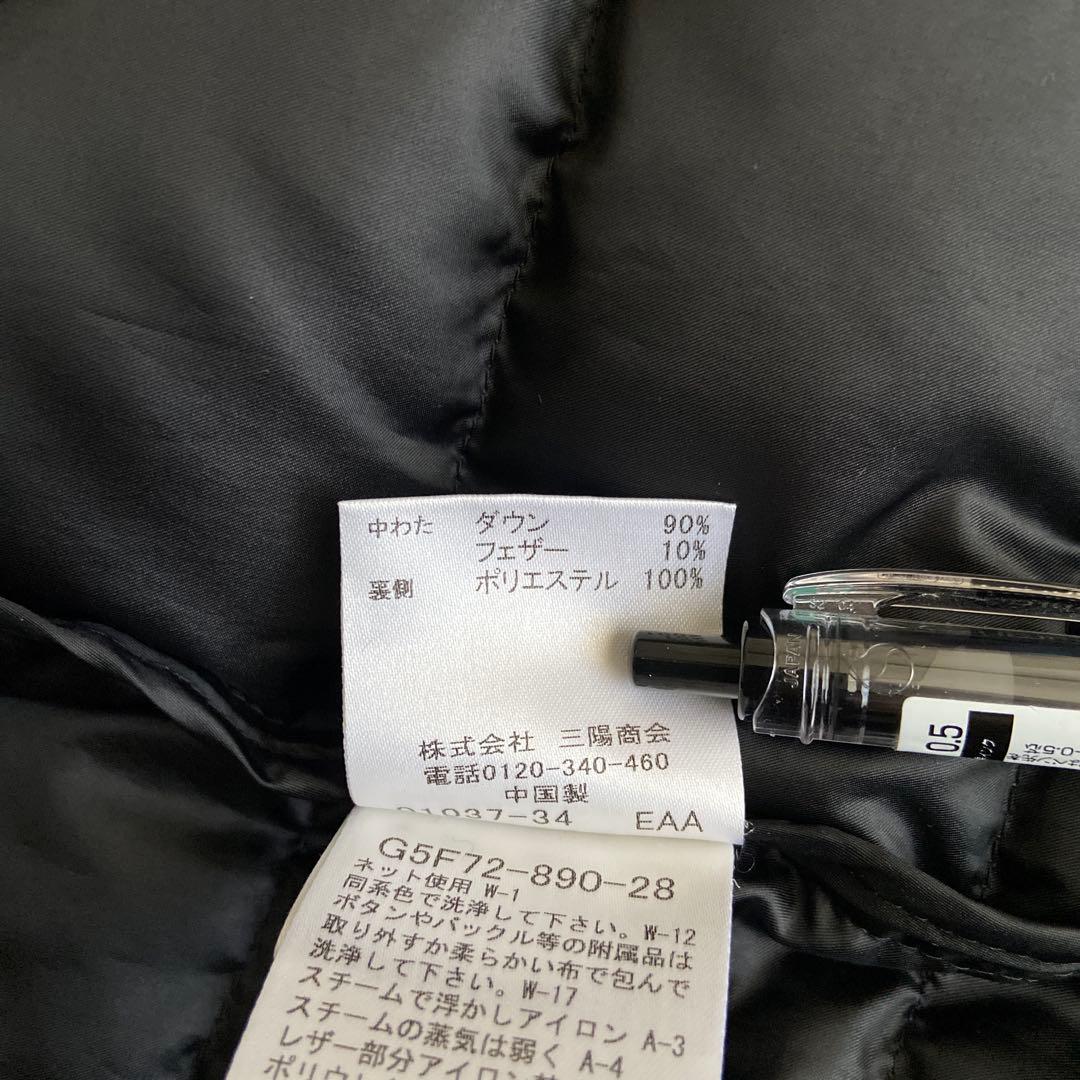 中わた ダウン 90%
フェザー 10%
裏側 ポリエステル 100%
株式会社 三陽商会
電話0120-340-460
中国製
EAA
G5F72-890-28
ネット使用 W-1
同系色で洗浄して下さい。W-12
ボタンやバックル等の附属品は
取り外すか柔らかい布で包んで
洗浄して下さい。W-17
スチームで浮かしアイロン A-3
スチームの蒸気は弱く A-4
レザー部分アイロン
JAPAN
0.5